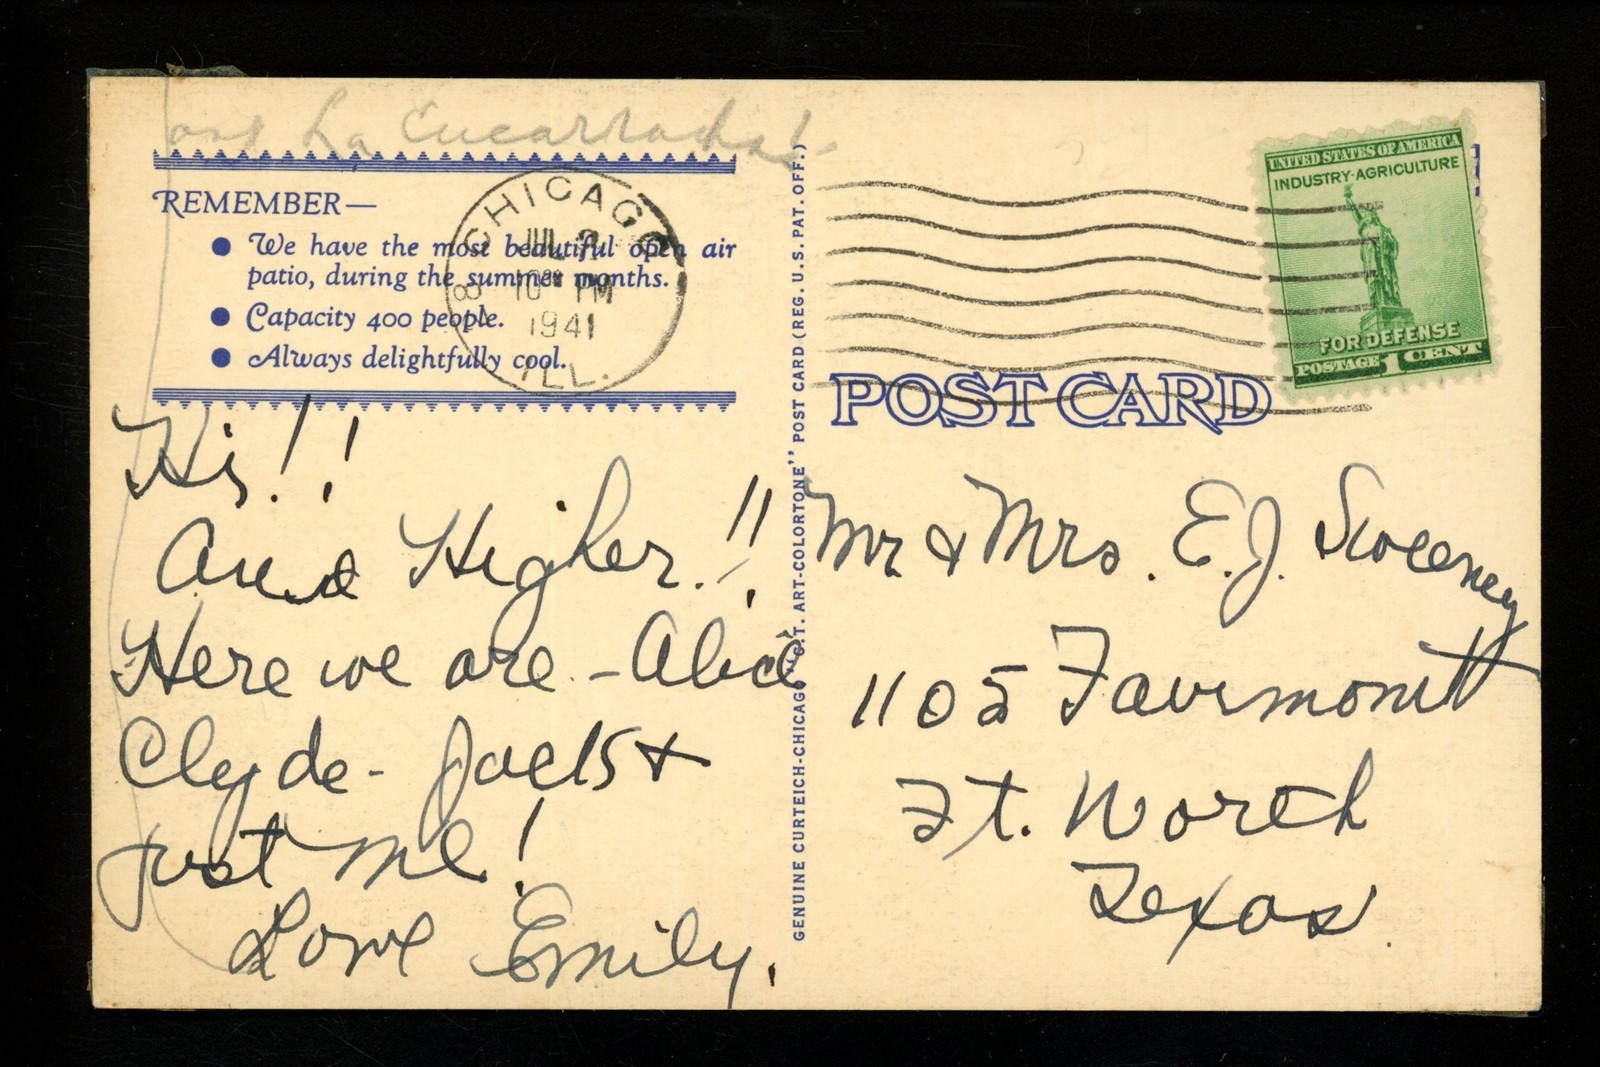 La Cucarracha!
REMEMBER—
● We have the most beautiful open air
patio, during the summer months.
● Capacity 400 people.
● Always delightfully cool.
CHICAGO
JUL
10 PM
1941
ILL.
Hi!!
And Higher!!!
Here we are - Alice
Clyde - Jack &
just me!
Love Emily.
GENUINE CURTEICH-CHICAGO "C.T. ART-COLORTONE" POST CARD (REG. U.S. PAT. OFF.)
UNITED STATES OF AMERICA
INDUSTRY-AGRICULTURE
FOR DEFENSE
POSTAGE 1 CENT
POST CARD
Mr & Mrs. E.J. Sweeney
1105 Fairmont
Ft. Worth
Texas.